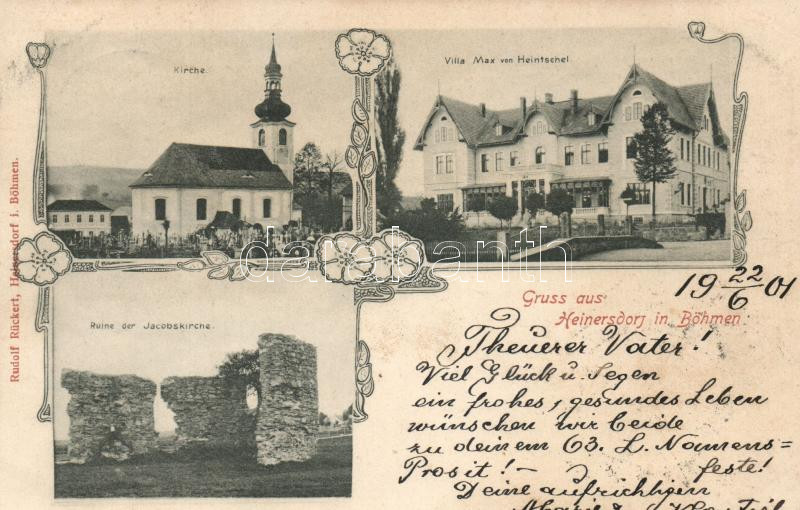 Kirche.
Villa Max von Heintschel.
Ruine der Jacobskirche.
Rudolf Rückert, Heinersdorf i. Böhmen.
darabanth.com
Gruss aus
Heinersdorf in Böhmen
19 22/6 01
Theuerer Vater!
Viel Glück u. Segen
ein frohes, gesundes Leben
wünschen wir beide
zu deinem 63. L. Namens=
Prosit! – feste!
Deine aufrichtigen